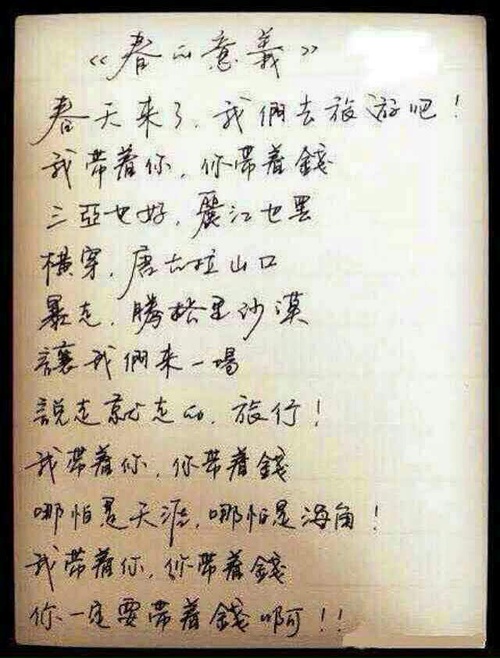 《春的意義》
春天来了，我們去旅游吧！
我带着你，你带着錢
三亞也好，麗江也罢
横穿，唐古拉山口
暴走，腾格里沙漠
讓我們来一場
説走就走的，旅行！
我带着你，你带着錢
哪怕是天涯，哪怕是海角！
我带着你，你带着錢
你一定要带着錢啊！！